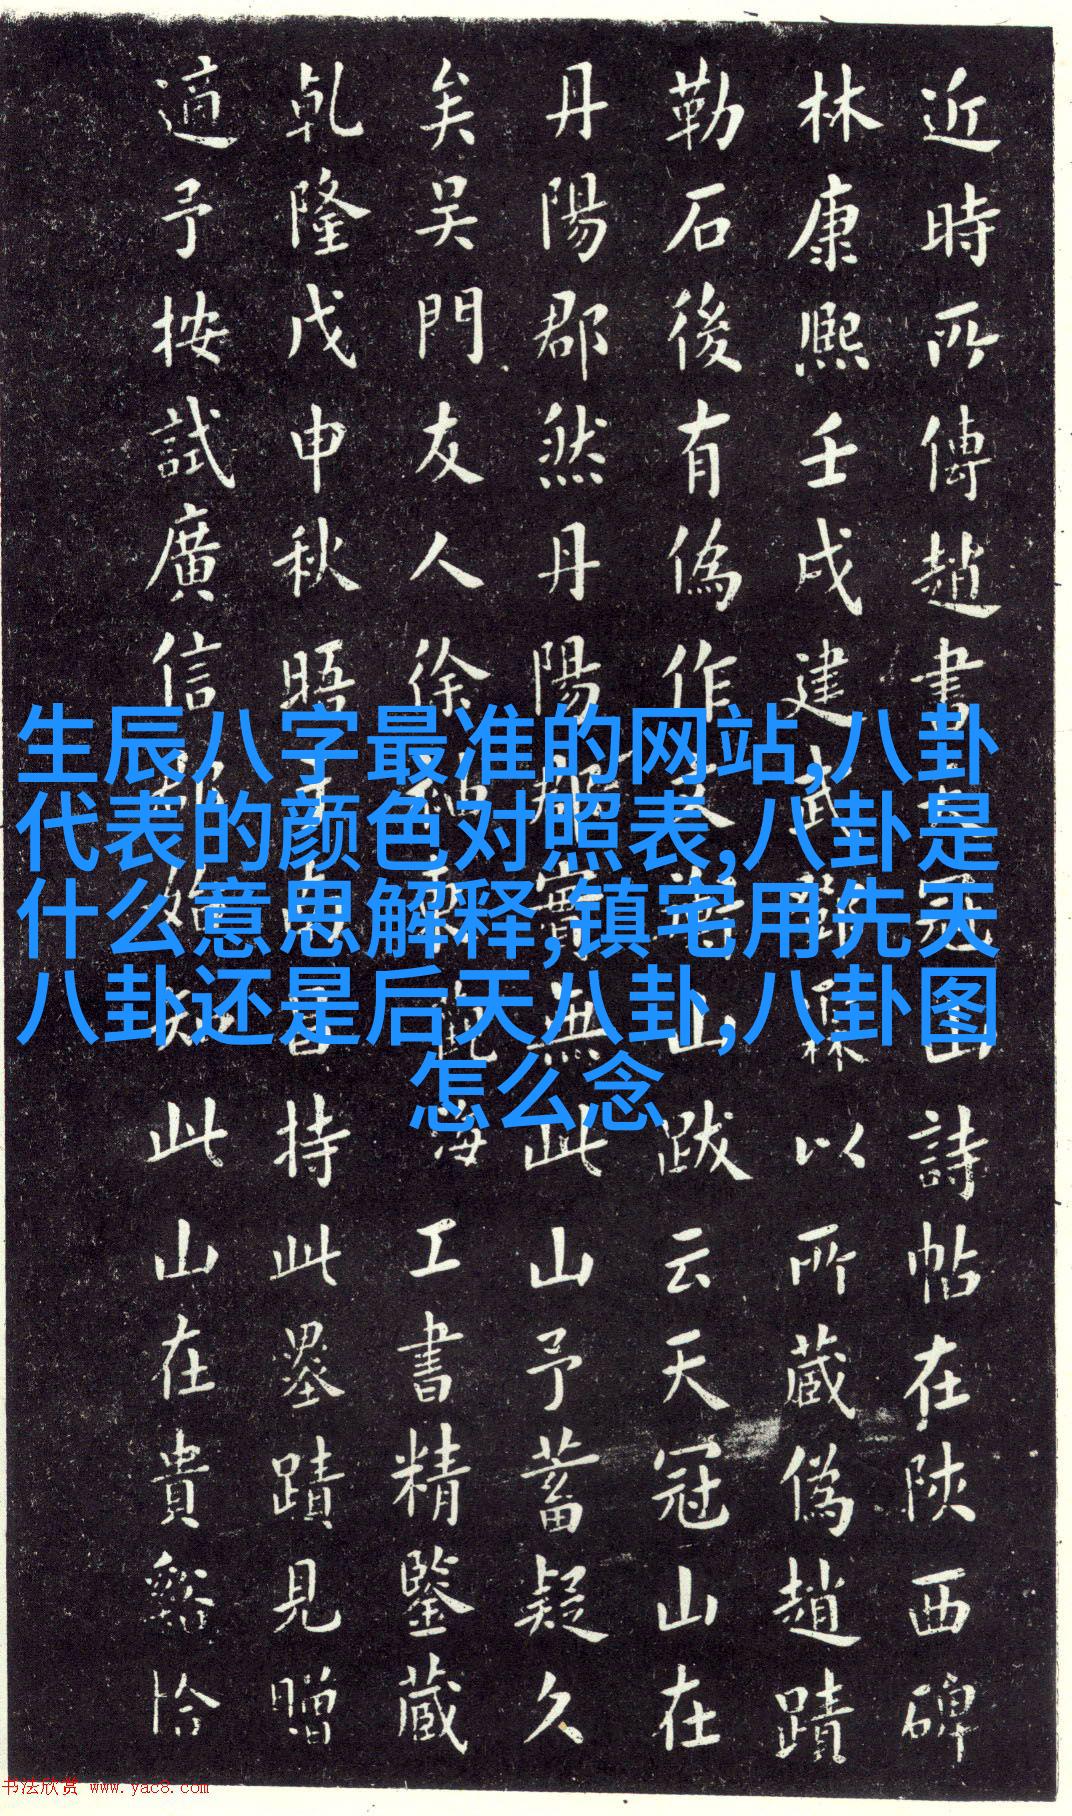 近時所傳趙書冠山詩帖在陝西碑
林康熙壬戌建武鄧霖以所蔵偽趙蹟
勒石後有偽作山跋云天冠山在
丹陽郡然丹陽郡實無此山予蓄疑久
矣吳門友人徐海工書精鑒蔵
乾隆戊申秋晤持此墨蹟見贈
適予按試廣信郡始知此山在貴谿恰
生辰八字最准的网站,八卦
代表的颜色对照表,八卦是
什么意思解释,镇宅用先天
八卦还是后天八卦,八卦图
怎么念
书法欣赏 www.yac8.com